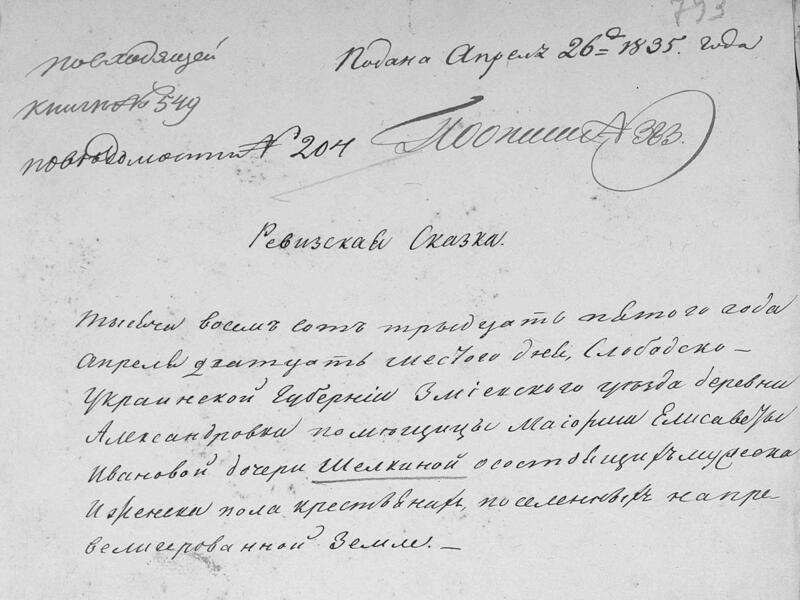 793
повходящей
книги № 549
повѣдомости № 204
Подана Апреля 26д 1835. года
№ 383.
Ревизская Сказка.
Тысяча восемъ сотъ тридцать пятого года
Апреля дватцать шестого дня, Слободско-
Украинской Губерніи Зміевского уѣзда деревни
Александровка помѣщицы Маіорши Елисаветы
Ивановой дочери Шелкиной осостоящихъ мужеска
Иженска пола крестьянъ, поселенныхъ напре
велигерованной Земле. —